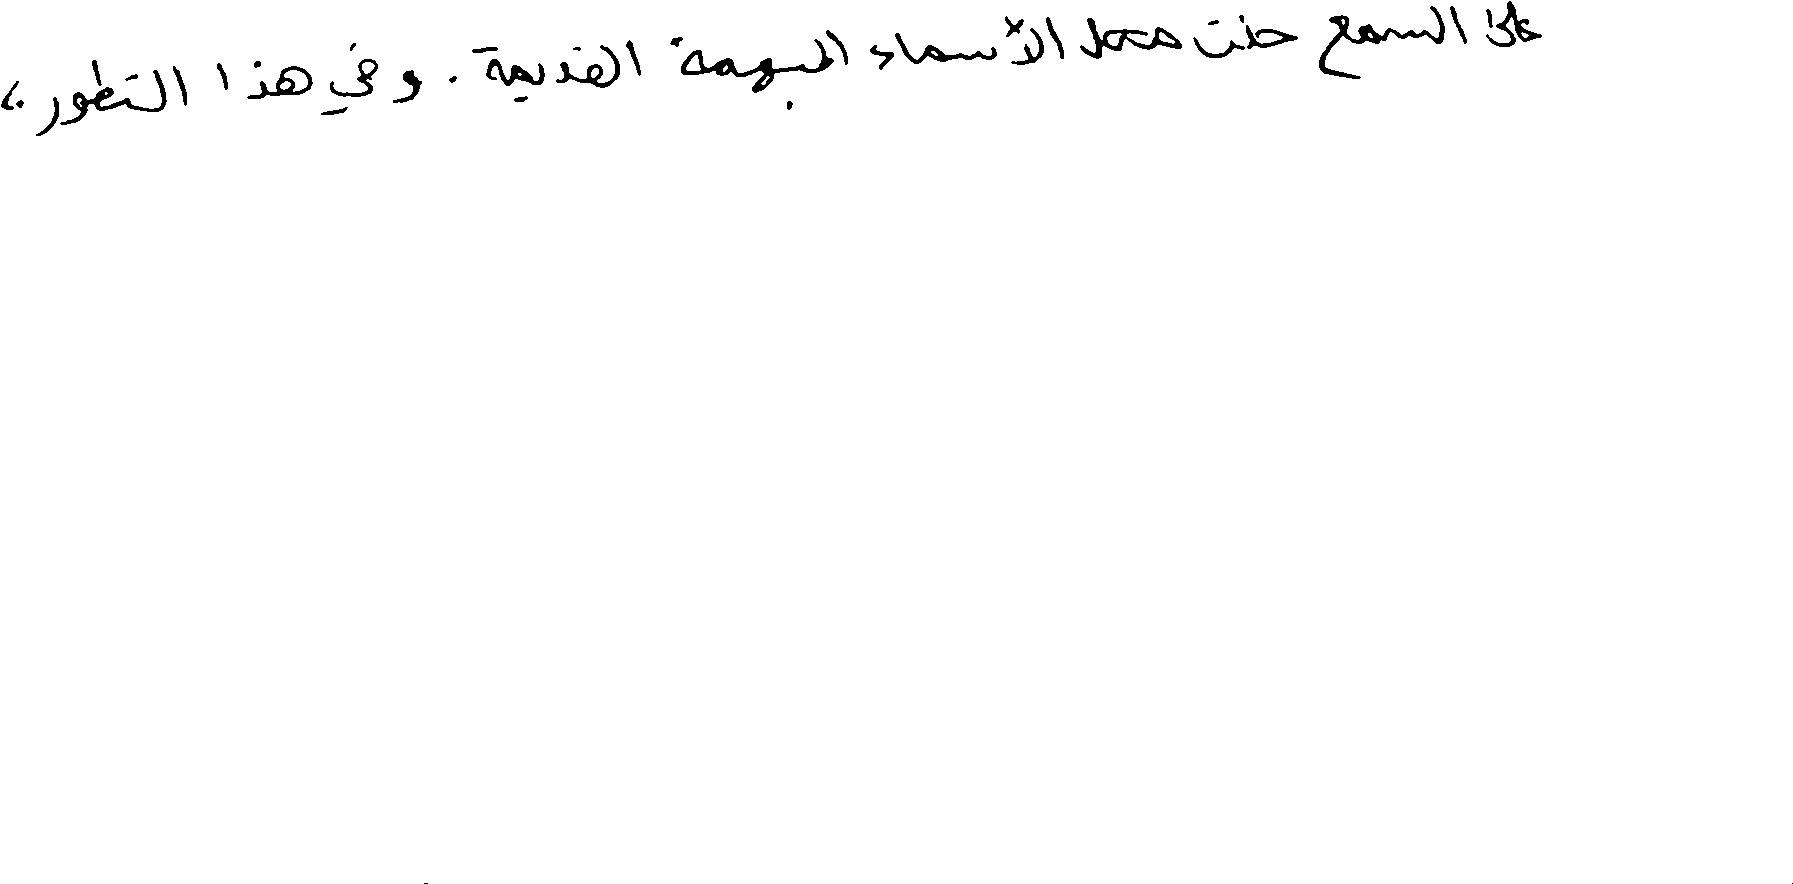 على السمع حلت محل الأسماء المبهمة القديمة. وفي هذا التطور،